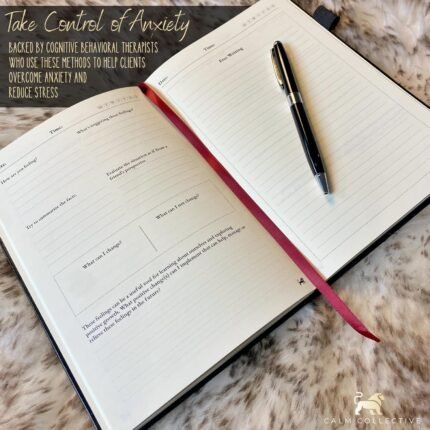 Take Control of Anxiety
BACKED BY COGNITIVE BEHAVIORAL THERAPISTS
WHO USE THESE METHODS TO HELP CLIENTS
OVERCOME ANXIETY AND
REDUCE STRESS
Time:
How are you feeling?
What's triggering these feelings?
Try to summarize the facts.
Evaluate the situation as if from a
friend's perspective.
What can I change?
What can I not change?
These feelings can be a useful tool for learning about ourselves and exploring
positive growth. What positive change(s) can I implement that can help, manage or
relieve these feelings in the future?
Date:
Time:
Free Writing
CALM COLLECTIVE